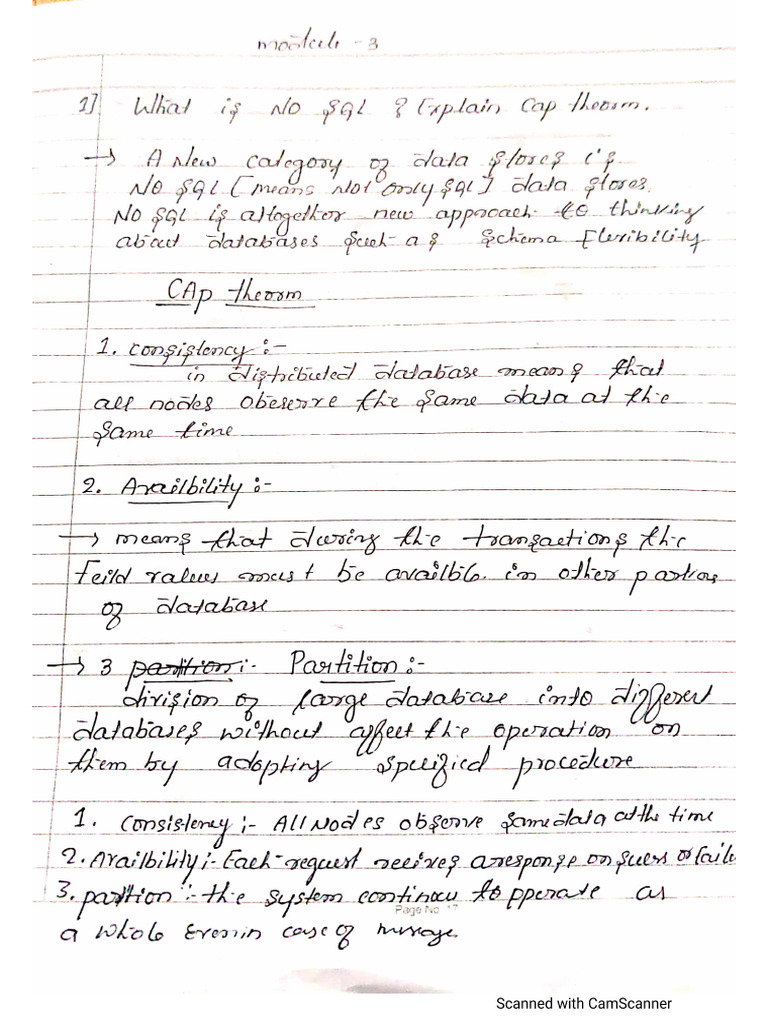 module - 3
1] What is NO SQL ? Explain Cap theorm.
→ A New category of data stores is
NO SQL [means Not only SQL] data stores.
NO SQL is altogether new approach to thinking
about databases such as schema flexibility
CAp theorm
1. consistency :-
in distributed database means that
all nodes obeserve the same data at the
same time
2. Availbility :-
→ means that during the transactions the
feild values must be availble in other partion
of database
→ 3 partition :- Partition :-
division of large database into different
databases without affect the operation on
them by adopting specified procedure
1. Consistency :- All Nodes observe same data at the time
2. Availbility :- Each request recives a response on sucess or faile
3. partion :- the system continow to opperate as
Page No. 17
a whole even in case of message.
Scanned with CamScanner